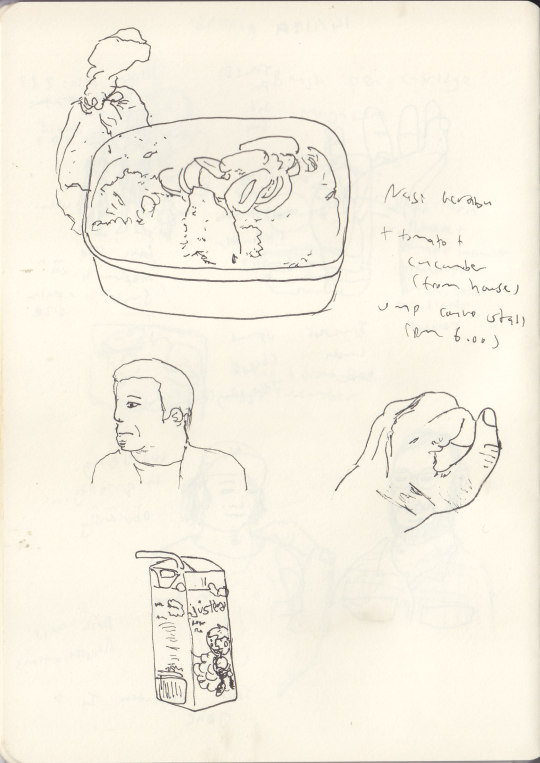 Nasi kerabu
+ tomato +
cucumber
(from house)
ump
(RM 6.00)
justea